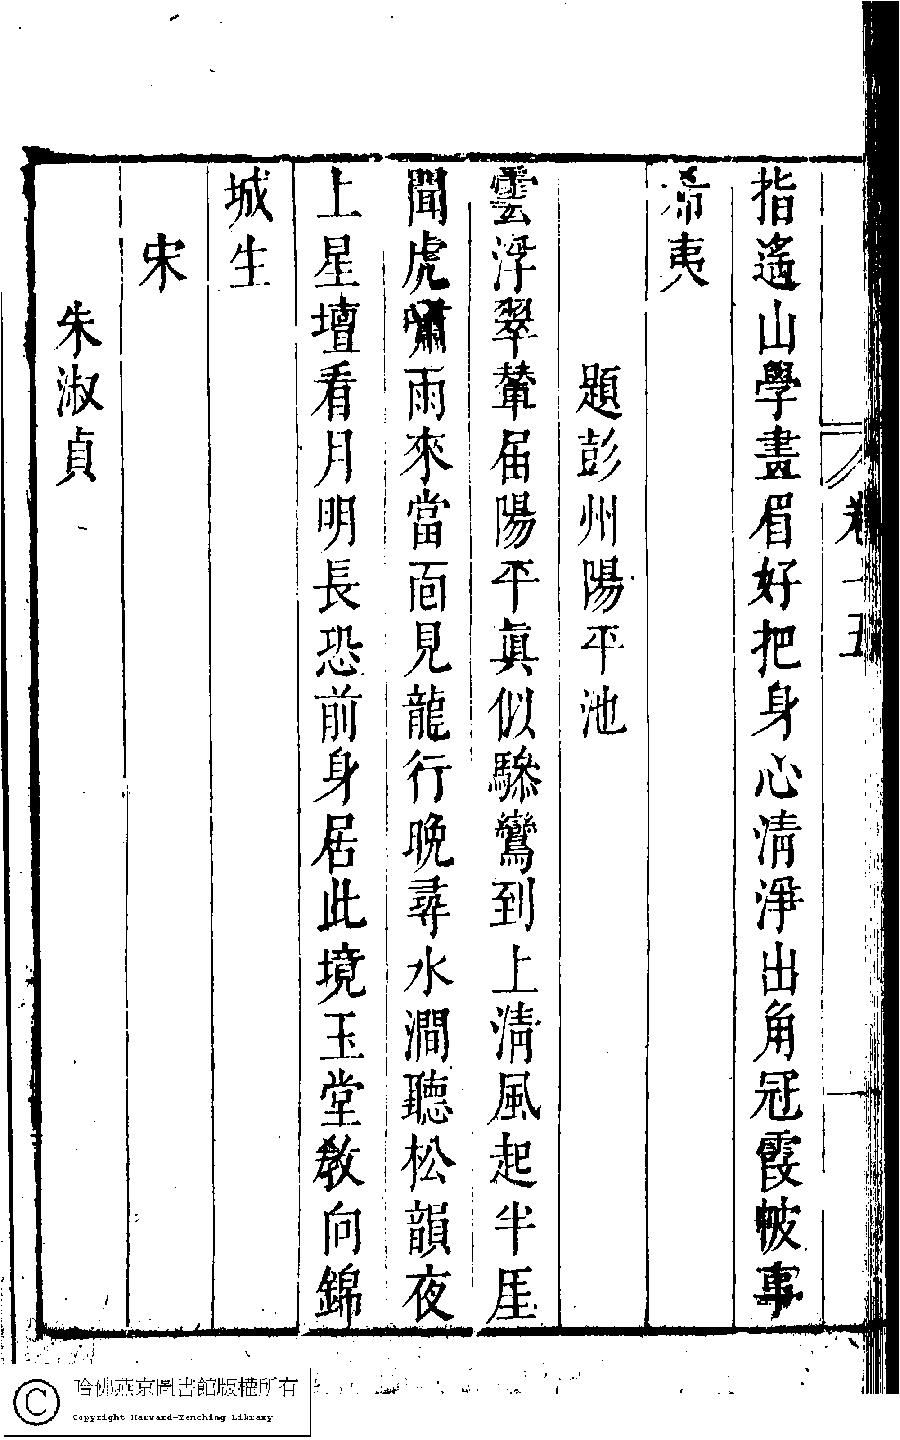 卷十五
指遙山學畫眉好把身心清淨出角冠霞帔事
希夷
題彭州陽平池
雲浮翠輦届陽平眞似驂鸞到上清風起半厓
聞虎嘯雨來當面見龍行晚尋水澗聽松韻夜
上星壇看月明長恐前身居此境玉堂教向錦
城生
宋
朱淑貞
哈佛燕京圖書館版權所有
Copyright Harvard-Yenching Library